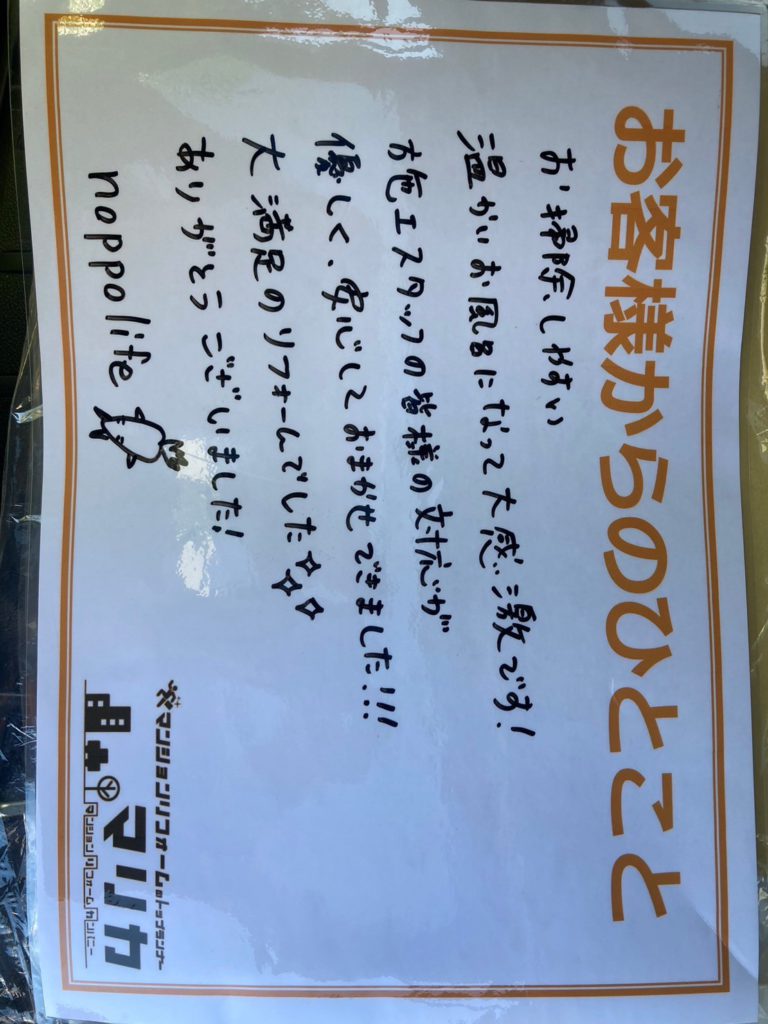 お客様からのひとこと
お掃除しやすい
温かいお風呂になって大感激です!
施工スタッフの皆様の対応が
優しく、安心しておまかせできました!!!
大満足のリフォームでした
ありがとうございました!
noppolife
マンションリフォームのトップランナー
マリカ
マンションリフォームカンパニー